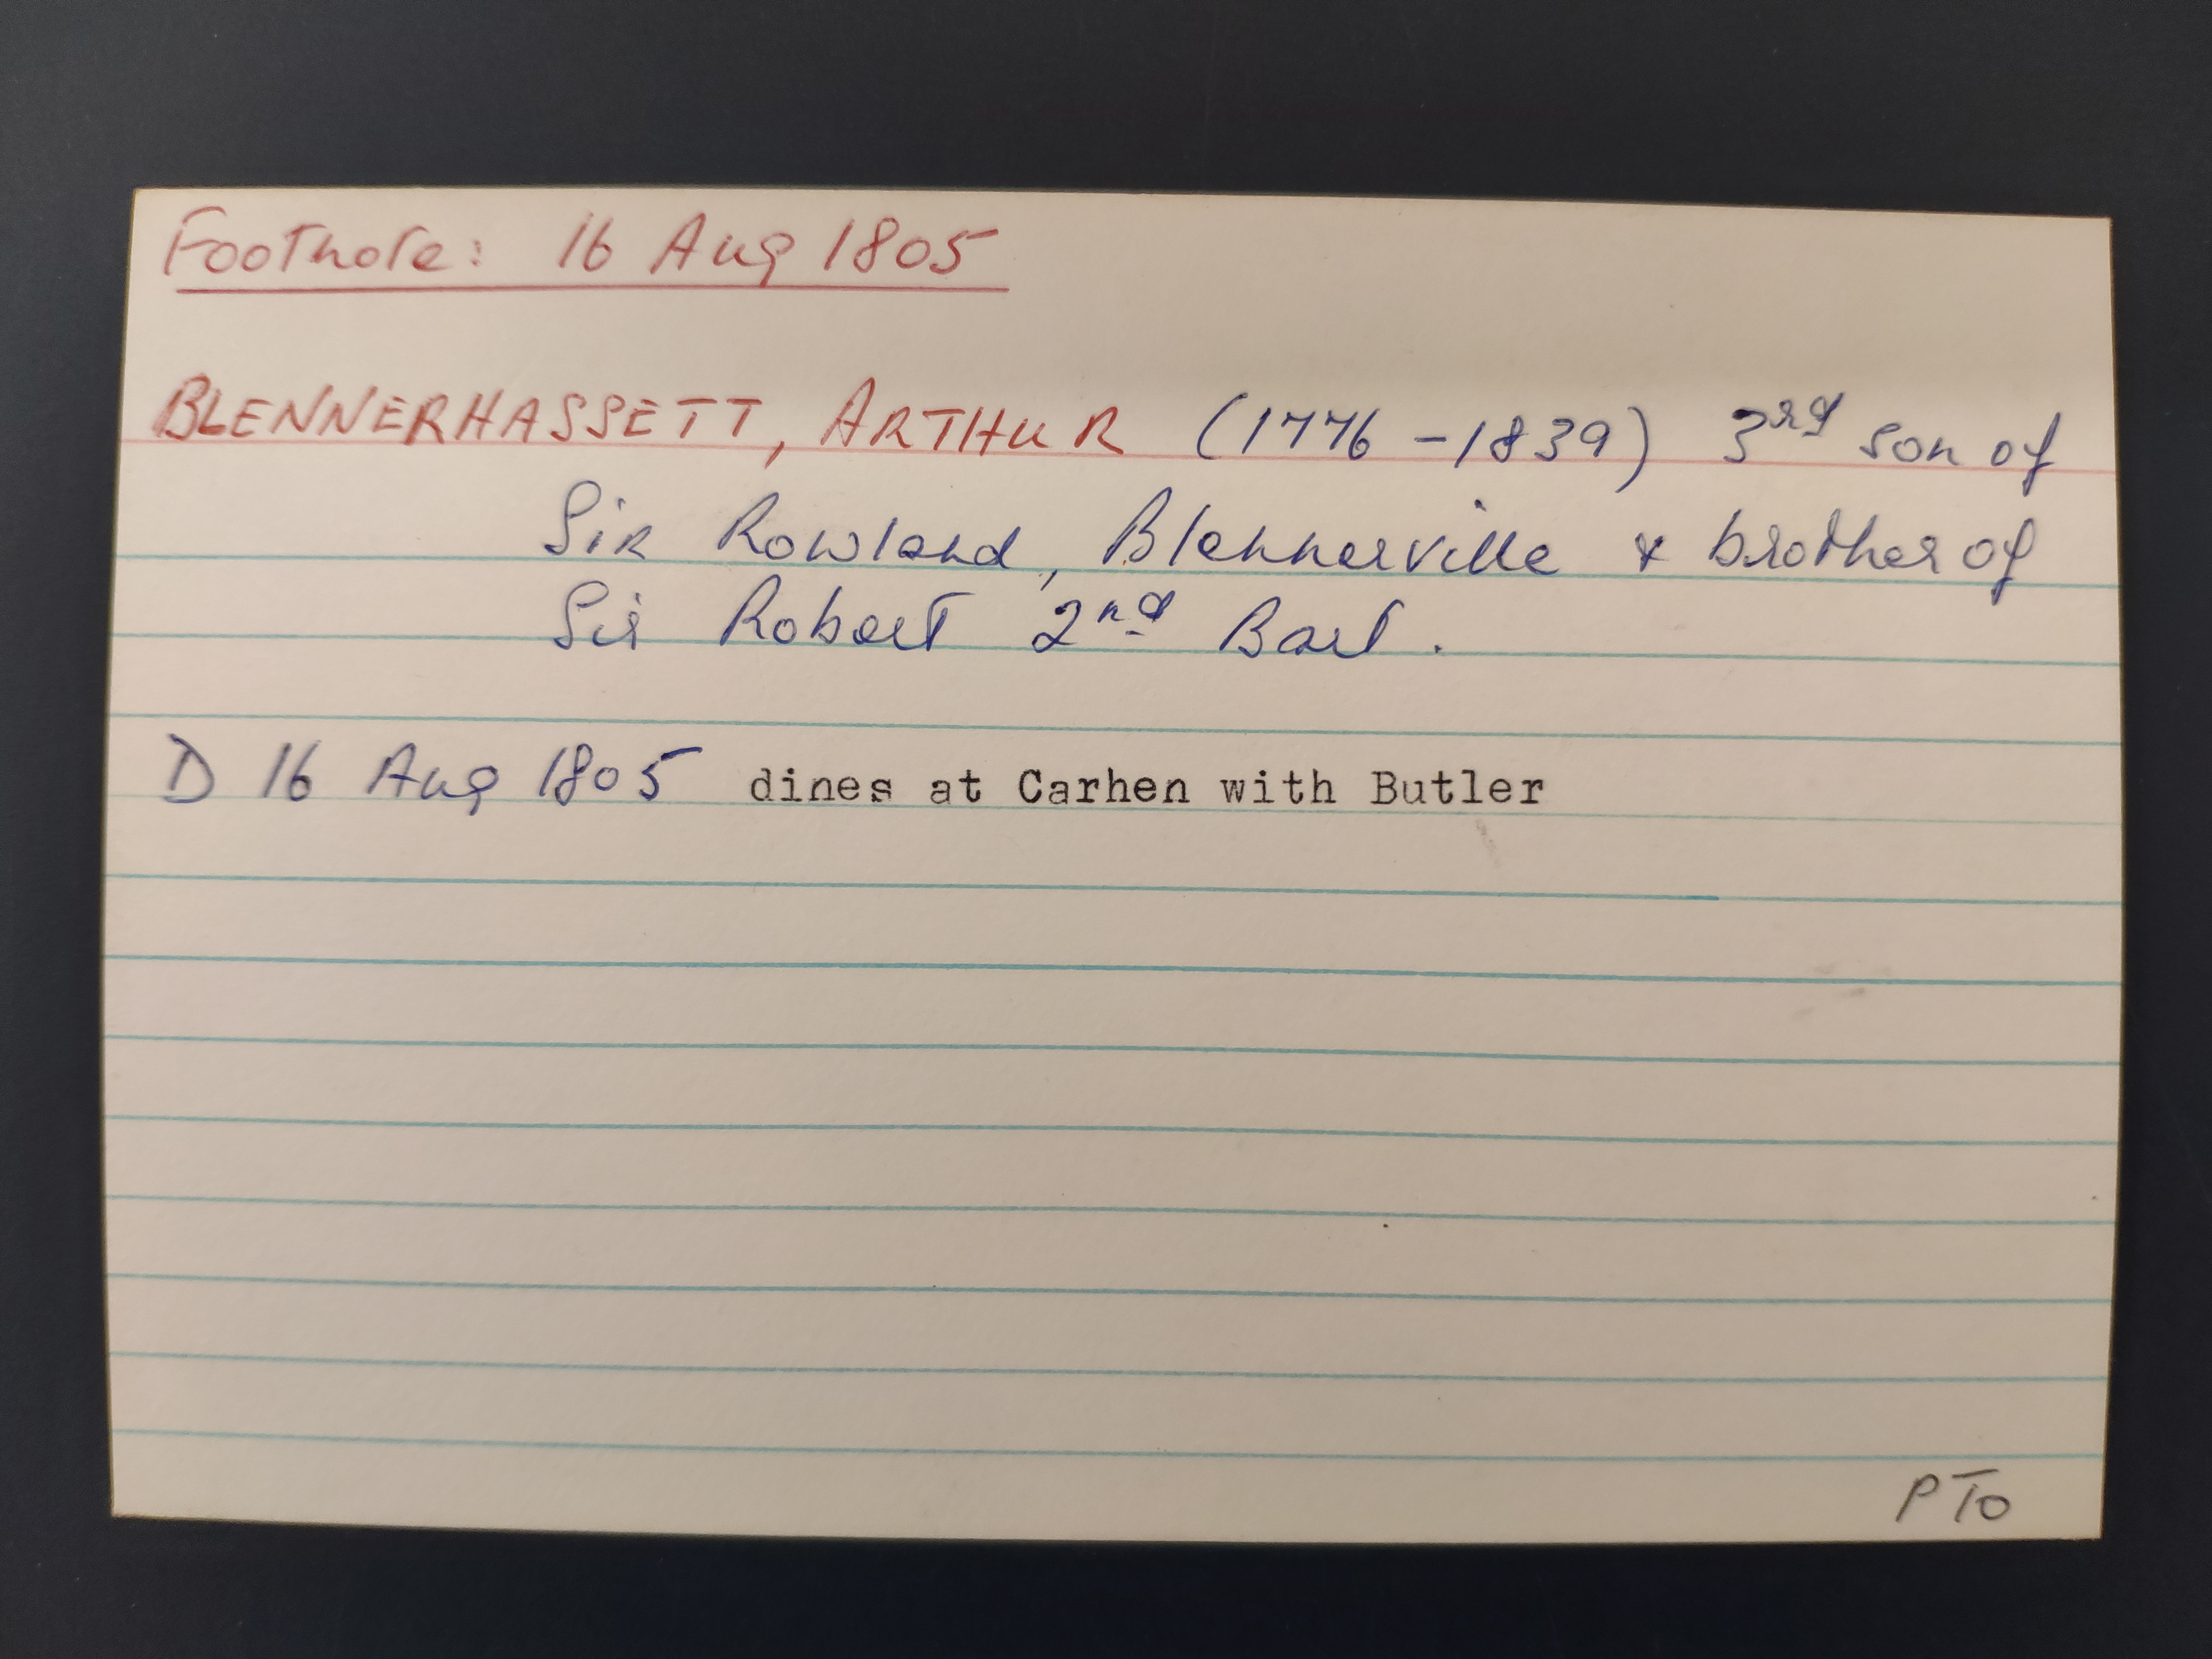 Footnote: 16 Aug 1805
BLENNERHASSETT, ARTHUR (1776 - 1839) 3rd son of
Sir Rowland, Blennerville & brother of
Sir Robert 2nd Bart.
D 16 Aug 1805 dines at Carhen with Butler
PTO